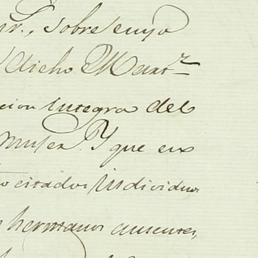 sobre cuyo
dicho
cion integra del
muser. Y que en
citados individuos
hermanos ausentes,